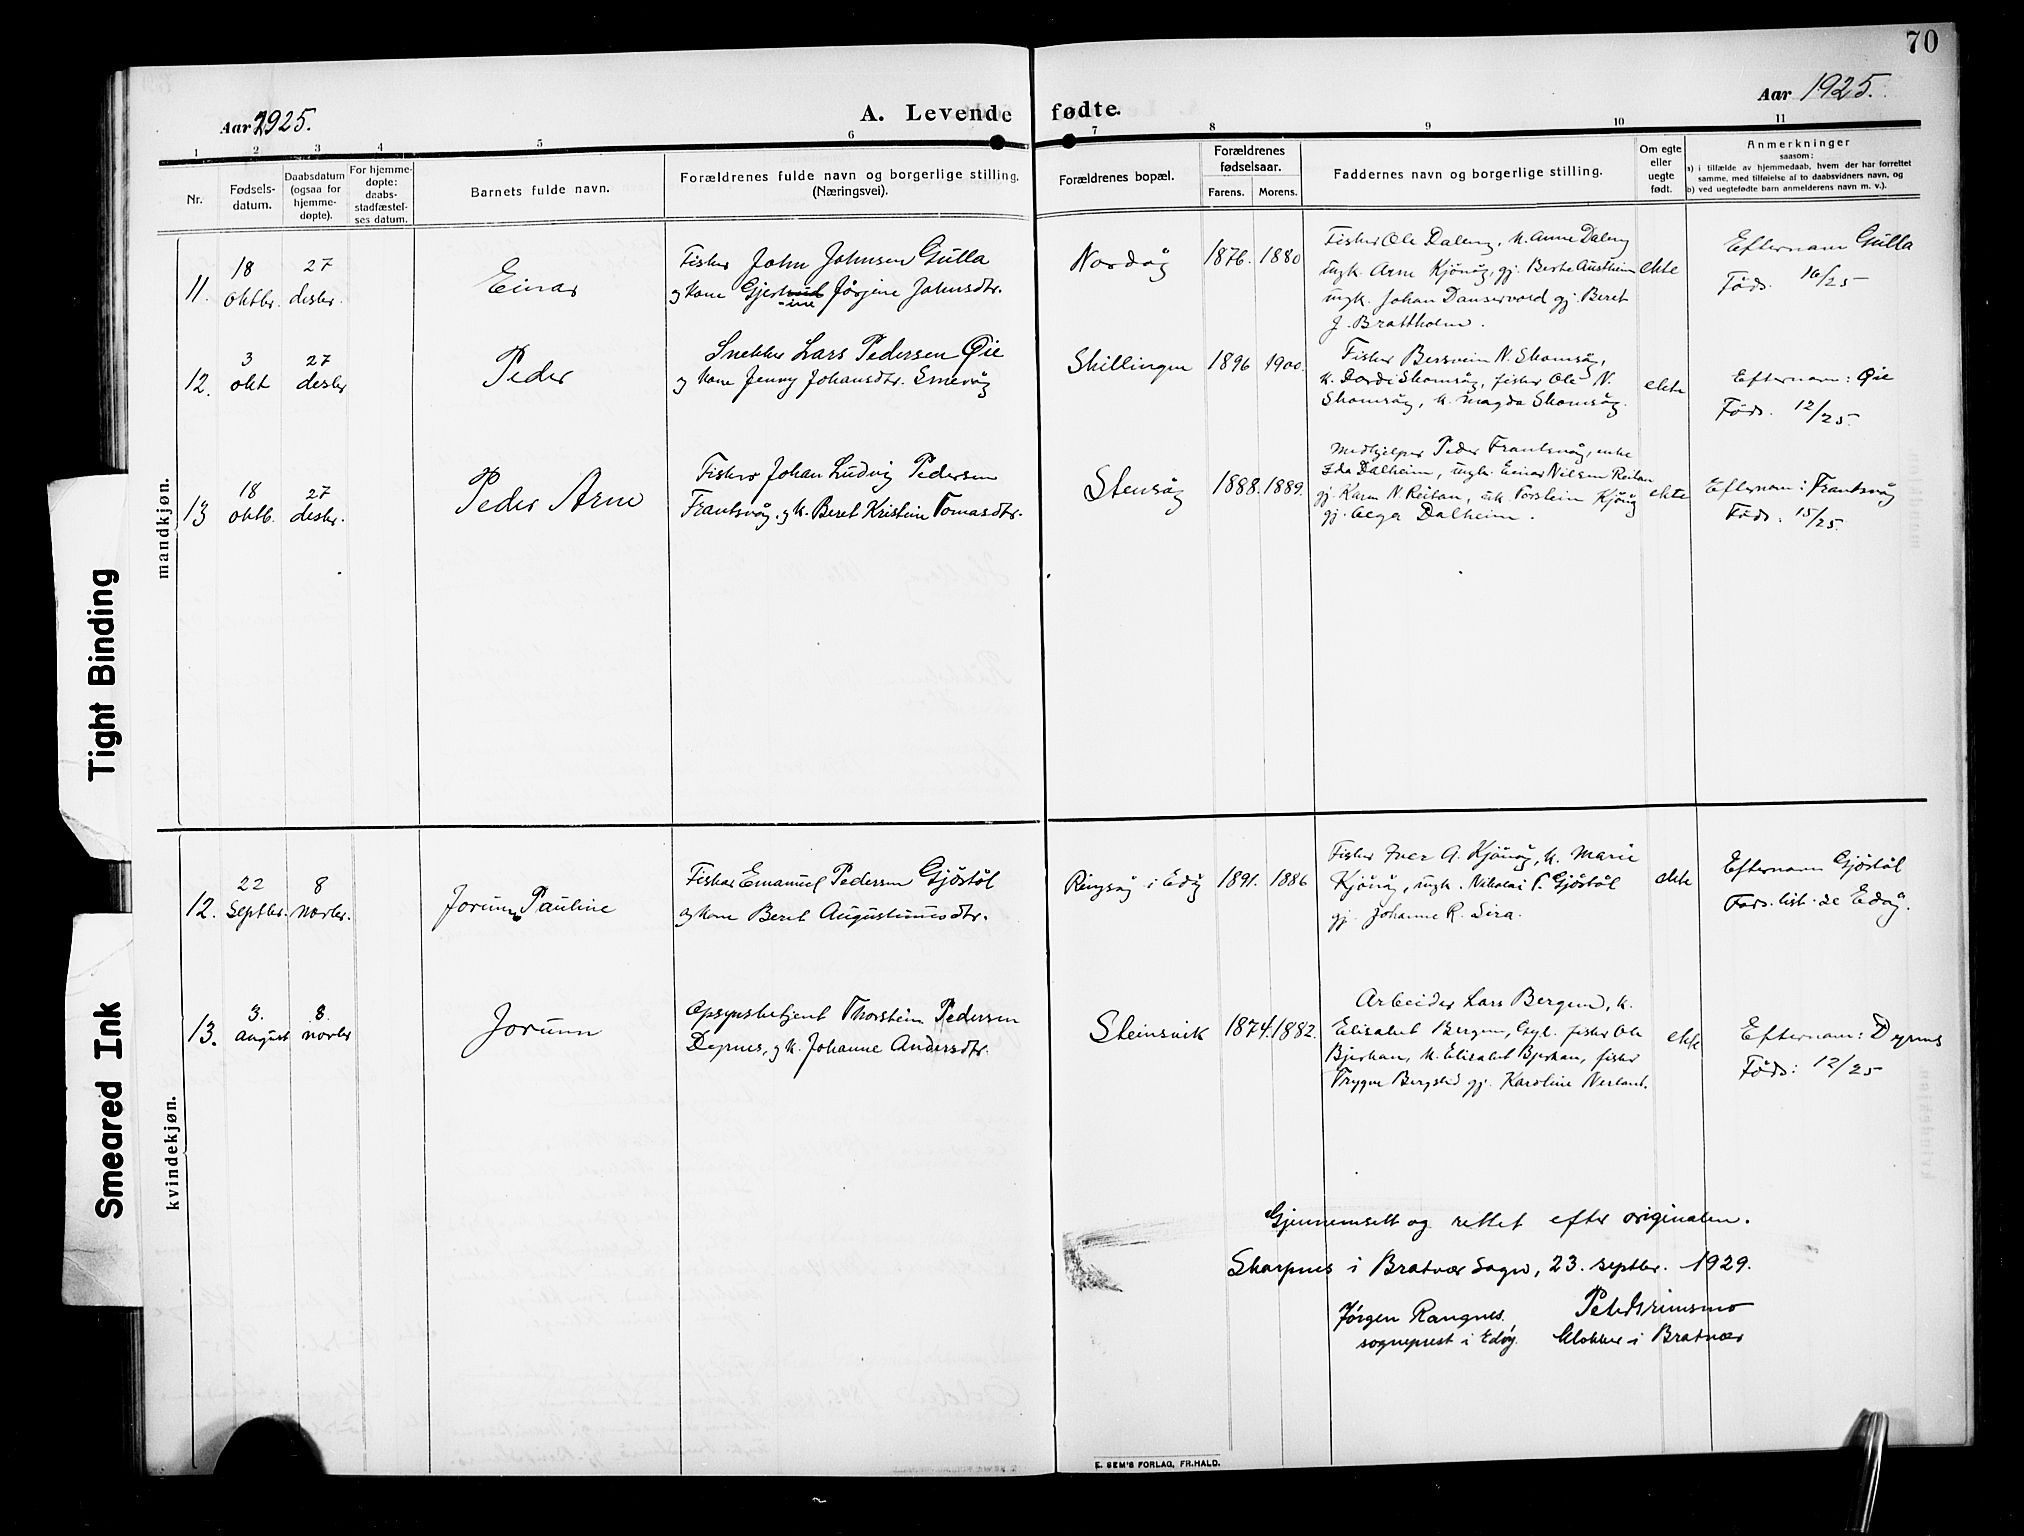 70
Aar 1925.
A. Levende fødte.
Aar 1925.
1 2 3 4 5 6 7 8 9 10 11
Nr.
Fødsels-
datum.
Daabsdatum
(ogsaa for
hjemme-
døpte).
For hjemme-
døpte:
daabs-
stadfæstel-
ses datum.
Barnets fulde navn.
Forældrenes fulde navn og borgerlige stilling.
(Næringsvei).
Forældrenes bopæl.
Forældrenes
fødselsaar.
Farens. Morens.
Faddernes navn og borgerlige stilling.
Om egte
eller
uegte
født.
Anmerkninger
saasom:
a) i tilfælde av hjemmedaab, hvem der har forrettet
samme, med tilføielse af to daabsvidners navn, og
b) ved uegtefødte barn anmelderens navn m. v.).
mandkjøn.
11.
18
oktbr.
27
desbr.
Einar
Fisker John Johnsen Gulla
og kone Gjertrud Jørgine Johnsdtr.
-ine
Nordøy
1876. 1880
Fisker Ole Daleng, k. Anne Daleng
ungk. Arne Kjönöy, gj. Berte Austheim
ungk. Johan Danservold gj. Beret
J. Brattholm.
ekte
Efternavn Gulla
Föds. 16/25
12.
3
okt
27
desbr
Peder
Snekker Lars Pedersen Øie
og kone Jenny Johansdtr. Smevåg
Skillingen
1896 1900.
Fisker Bersvein N. Skomsöy,
k. Dordi Skomsöy, fisker Ole N.
Skomsöy, k. Magda Skomsöy.
ekte
Efternavn: Øie
Föds. 12/25.
13
18
oktb.
27
desbr.
Peder Arne
Fisker Johan Ludvig Pedersen
Frantsvåg, og k. Beret Kristine Tomasdtr.
Stensöy
1888. 1889.
Medhjelper Peder Frantsvåg, enke
Ida Dalheim, ungk. Einar Nilsen Reitan
gj. Karen N. Reitan, uk Torstein Kjönöy
gj. Olga Dalheim.
ekte
Efternavn: Frantsvåg
Föds: 15/25.
kvindekjøn.
12.
22
septbr.
8
novbr.
Jorunn Pauline
Fisker Emanuel Pedersen Gjöstöl
og kone Beret Augustinusdtr.
Ringsöy i Edöy
1891. 1886
Fisker Iver A. Kjönöy, k. Marie
Kjönöy, ungk. Nikolai P. Gjöstöl
gj. Johanne R. Sira.
ekte
Efternavn Gjöstöl
Föds. list. 20 Edöy.
13.
3.
august
8.
novbr
Jorunn
Opsynsbetjent Thorstein Pedersen
Dyrnes, og k. Johanne Andersdtr.
Steinsvik
1874. 1882.
Arbeider Lars Bergem, k.
Elisabet Bergem, fisker Ole
Bjerkan, k. Elisabet Bjerkan, fisker
Trygve Bergsted gj. Karoline Nerland.
ekte
Efternavn: Dyrnes
Föds: 12/25
Gjennemsett og rettet efter originalen.
Skarpnes i Bratvær sogn, 23. septbr. 1929.
Jørgen Rangnes.
sogneprest i Edöy.
klokker i Bratvær
E. SEM'S FORLAG, FR.HALD.
Tight Binding
Smeared Ink